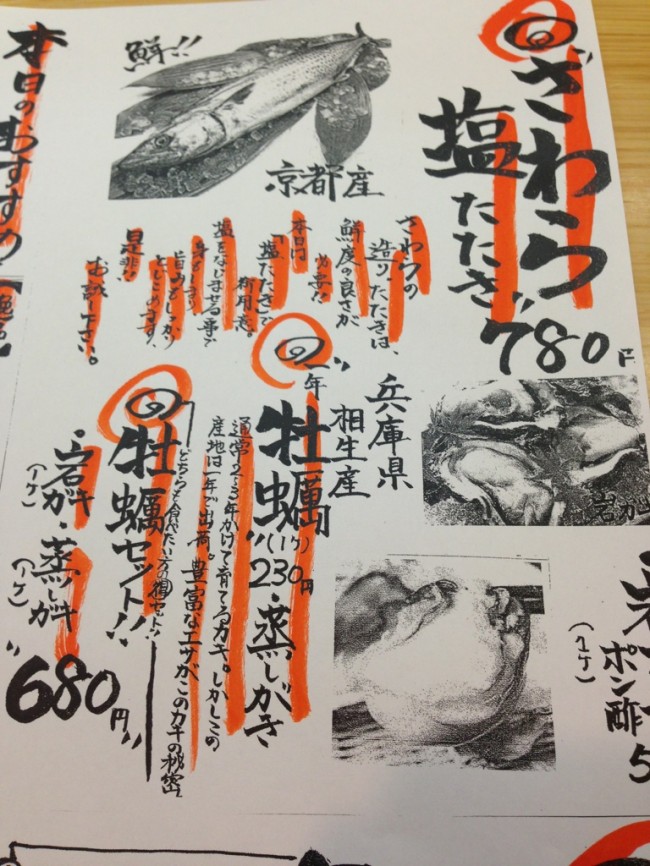 ざわら
塩たたき
780円
鮮!!
京都産
さわらの
造り、たたきは、
鮮度の良さが
必要!!
本日は
「塩たたき」で
御用意。
塩をなじませる事で
身もしまり
旨みもしっかり
とじこめます。
是非!!
お試し下さい。
本日のおすすめ
兵庫県
相生産
岩ガキ
ポン酢
(1ヶ)
5
一年牡蠣
(1ヶ)
230円
・蒸しがき
通常2〜3年かけて育てるカキ。しかしこの
産地は一年で出荷。豊富なエサが、このカキの秘密
牡蠣セット!!
どちらも食べたい方の為のセット!!
・岩ガキ・蒸しガキ
(1ヶ)
(1ヶ)
680円